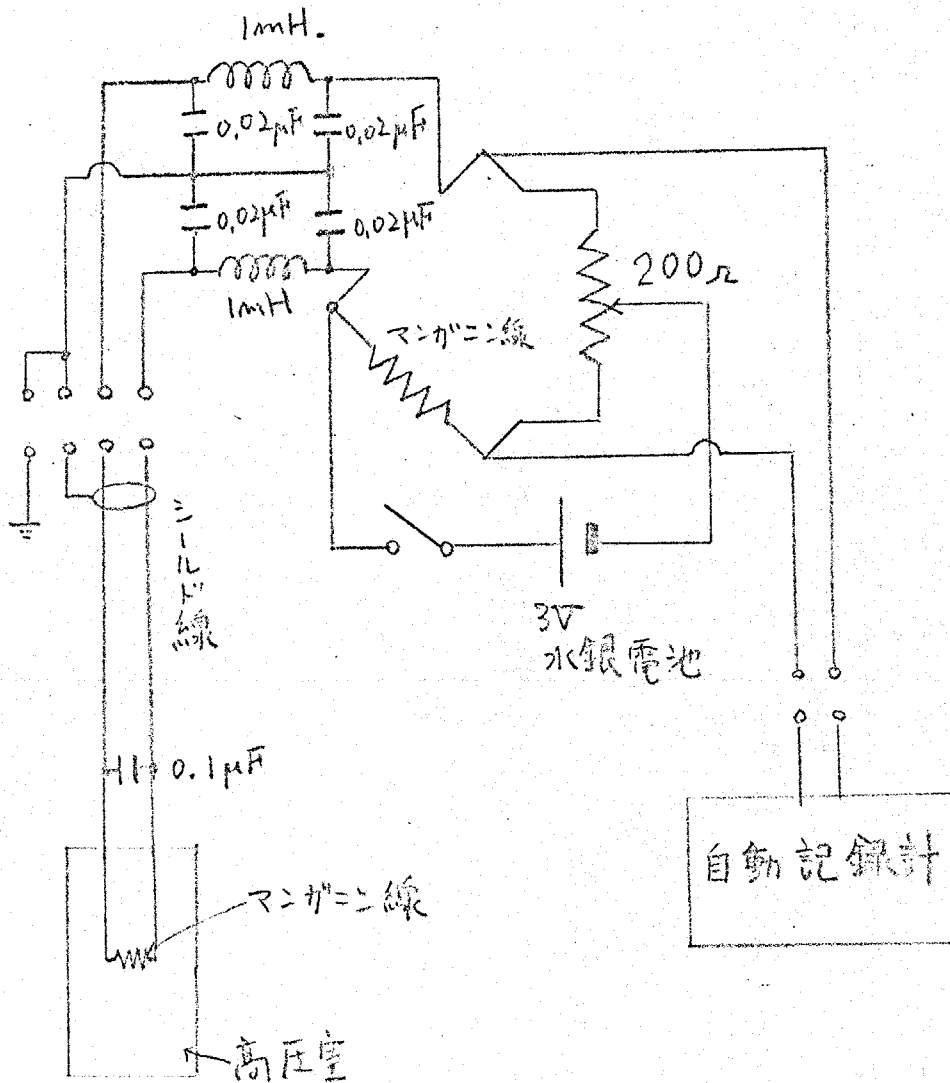 1mH.
0.02μF
0.02μF
0.02μF
0.02μF
1mH
200Ω
マンガニン線
シールド線
3V
水銀電池
0.1μF
マンガニン線
自動記録計
高圧室